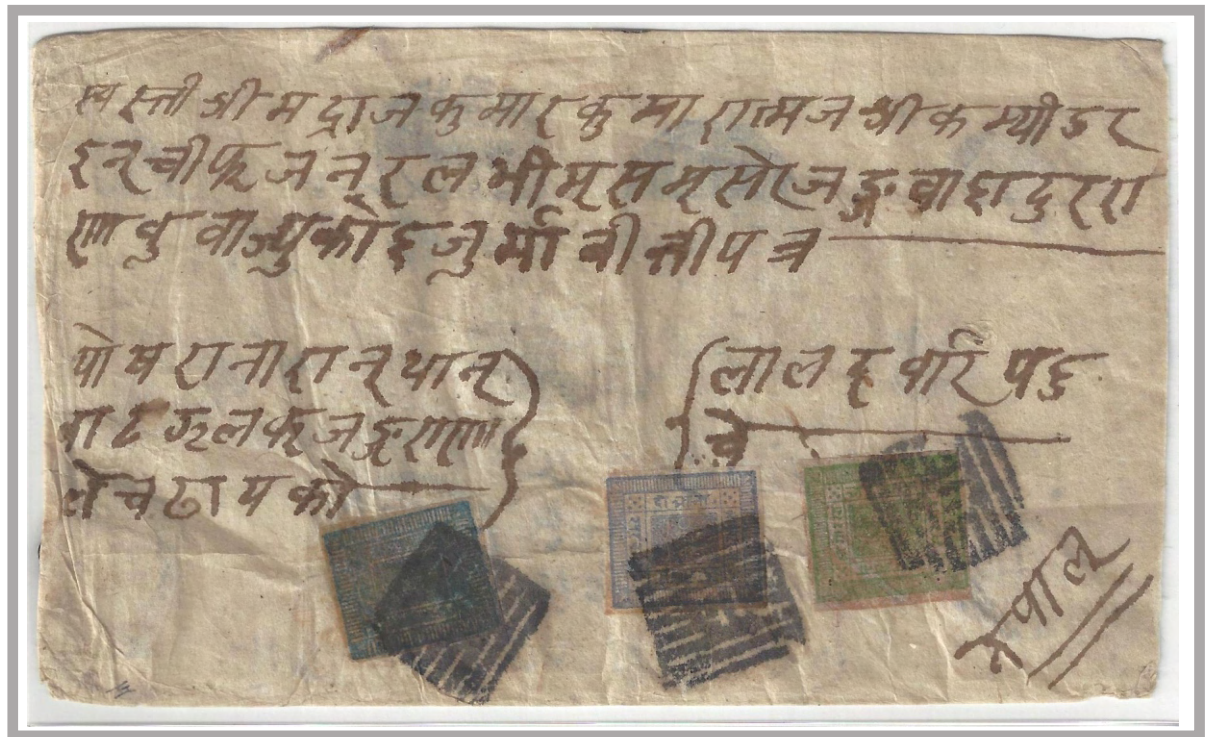 स्वस्ती श्री मद्राज कुमार कुमारात्मज श्री कम्यांडर
इन्चीफ् जन्रल भीम्सम्सेर्जङ्ग वाहादुर रा
णा वुवाज्युको हजुर्मा वीन्तीपत्र
पोषरा नारान्थान्
वाट
जङ्गराणा
ले चढायको
लाल दर्वार पहु
चे
नेपाल